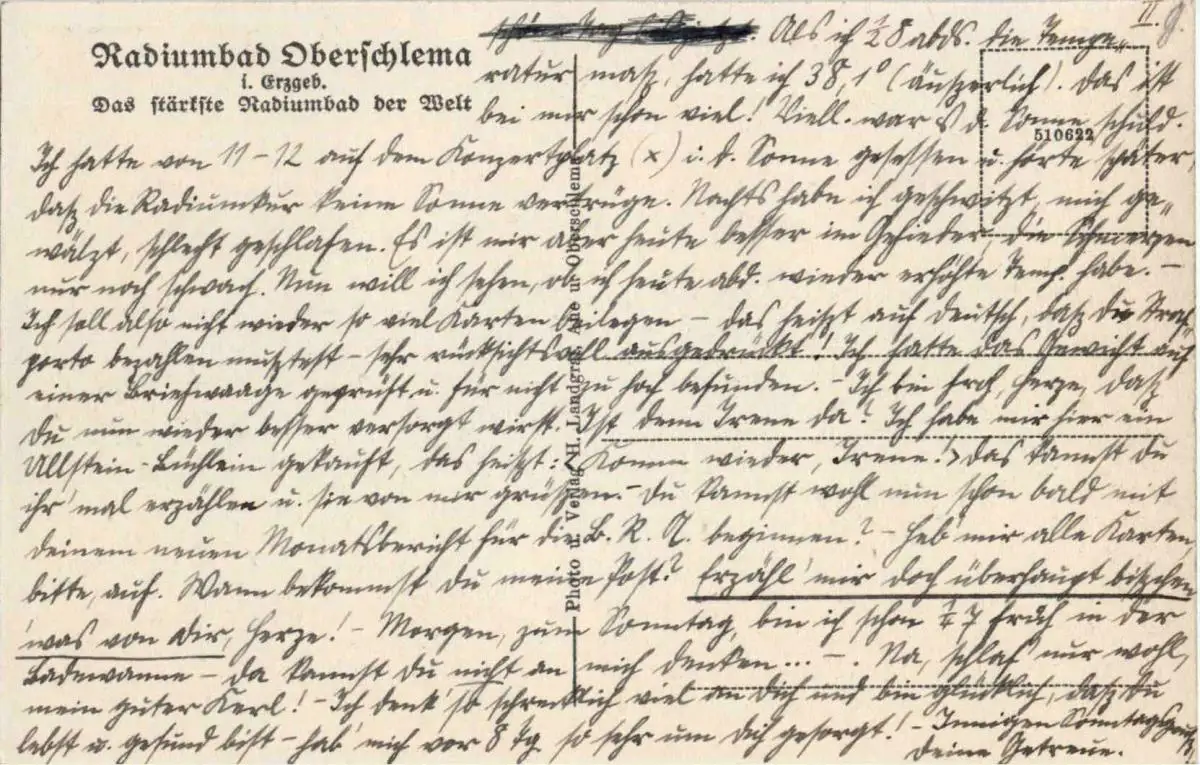 II.
Radiumbad Oberschlema
i. Erzgeb.
Das stärkste Radiumbad der Welt
510622
Photo u. Verlag H. Landgraf, Aue u. Oberschlema
Als ich ½8 abds. die Tempe-
ratur masz, hatte ich 38,1° (äuszerlich). Das ist
bei mir schon viel! Viell. war d. Sonne schuld.
Ich hatte von 11-12 auf dem Konzertplatz (x) i. d. Sonne gesessen u. hörte später,
dasz die Radiumkur keine Sonne vertrüge. Nachts habe ich geschwitzt, mich ge-
wälzt, schlecht geschlafen. Es ist mir aber heute besser im Gefieder, die Schmerzen
nur noch schwach. Nun will ich sehen, ob ich heute abd. wieder erhöhte Temp. habe. –
Ich soll also nicht wieder so viel Karten beilegen – das heiszt auf deutsch, dasz Du Straf-
porto bezahlen musztest – sehr rücksichtsvoll ausgedrückt! Ich hatte das Gewicht auf
einer Briefwaage geprüft u. für nicht zu hoch befunden. – Ich bin froh, Herze, dasz
Du nun wieder besser versorgt wirst. Ist denn Irene da? Ich habe mir hier ein
Ullstein-Büchlein gekauft, das heiszt: Komm wieder, Irene! Das kannst Du
ihr mal erzählen u. sie von mir grüszen. – Du kannst wohl nun schon bald mit
Deinem neuen Monatsbericht für die B. R. A. beginnen? – Heb' mir alle Karten,
bitte, auf. Wann bekommst Du meine Post? Erzähl' mir doch überhaupt bisschen
'was von Dir, Herze! – Morgen, zum Sonntag, bin ich schon ¼7 früh in der
Badewanne – da kannst Du nicht an mich denken... –. Na, schlaf' nur wohl,
mein guter Kerl! – Ich denk' so schrecklich viel an Dich und bin glücklich, dasz Du
lebst u. gesund bist – hab' mich vor 8 Tg. so sehr um Dich gesorgt! – Innigen Sonntagsgrusz,
Deine Getreue.